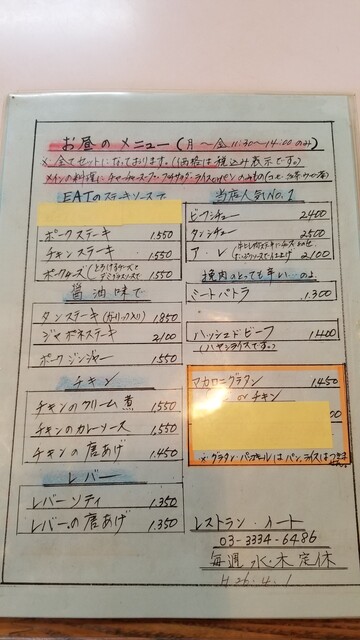 お昼のメニュー (月〜金 11:30〜14:00のみ)
※全てセットになっております。(価格は税込み表示です。)
EATのステーキソースで
ポークステーキ 1.550
チキンステーキ 1.550
1.550
醤油味で
タンステーキ (ガーリック入り) 1.850
ジャポネステーキ 2.100
ポークジンジャー 1.550
チキン
チキンのクリーム煮 1.550
チキンのカレーソース 1.550
チキンの唐あげ 1.450
レバー
レバーソティ 1.350
レバーの唐あげ 1.350
当店人気No.1
ビーフシチュー 2400
タンシチュー 2500
ア・レ 2.100
挽肉のとっても辛い…のよ
ミートパトラ 1.300
ハッシュドビーフ 1.400
(ハヤシライスです。)
マカロニグラタン 1.450
or チキン
※グラタン・パンコキールはパン、ライスはつきません
レストラン・イート
03-3334-6486
毎週 水・木 定休
H26.4.1